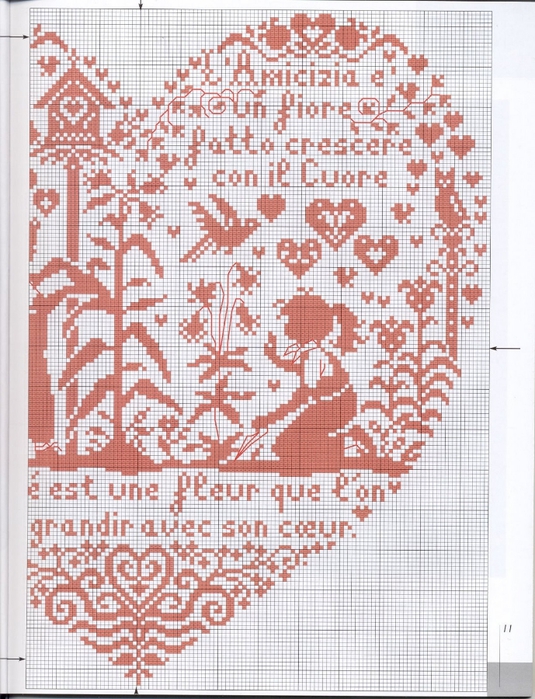 L'Amicizia e'
un fiore
fatto crescere
con il Cuore
é est une fleur que l'on
grandir avec son cœur.
11